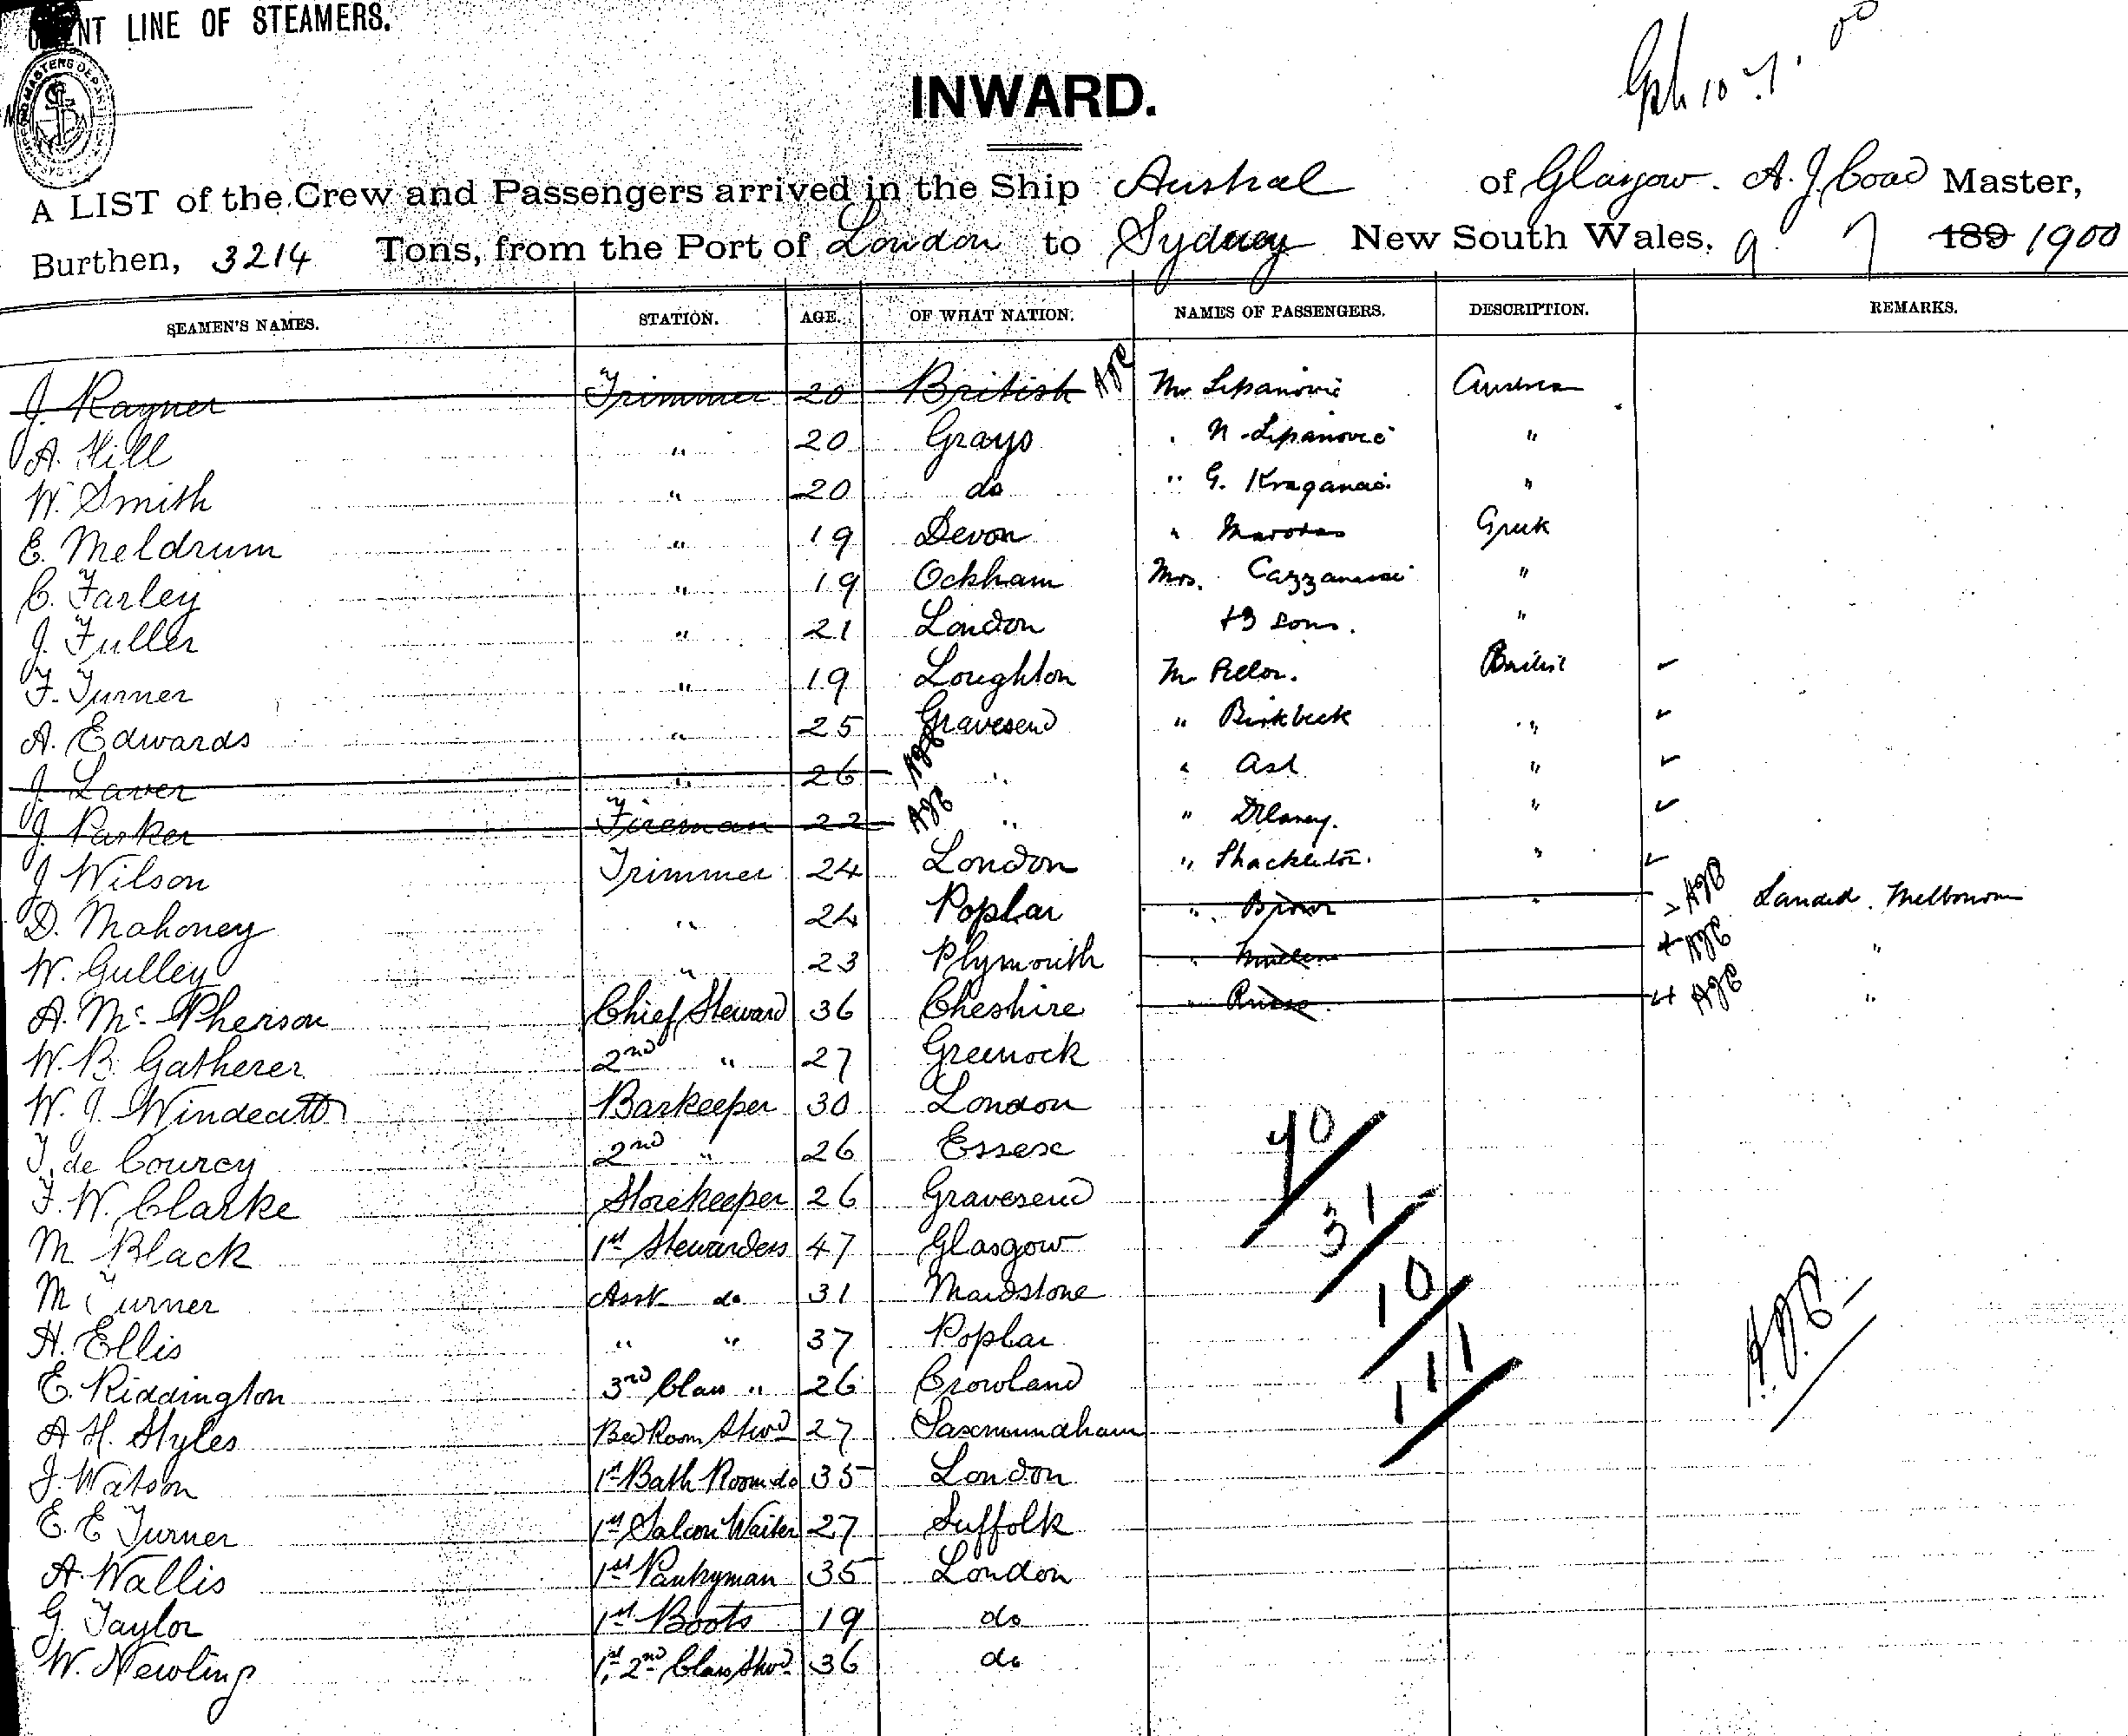 LINE OF STEAMERS.
INWARD.
A LIST of the Crew and Passengers arrived in the Ship Austral of Glasgow. A. J. Coad Master,
Burthen, 3214 Tons, from the Port of London to Sydney New South Wales. 9 7 189 1900
SEAMEN'S NAMES. STATION. AGE. OF WHAT NATION. NAMES OF PASSENGERS. DESCRIPTION. REMARKS.
J. Rayner Trimmer 20 British AJC Mr
A. Hill " 20 Grays " N "
W. Smith " 20 do " G. "
E. Meldrum " 19 Devon " Greek
C. Farley " 19 Ockham Mrs. "
J. Fuller " 21 London +3 sons. "
F. Turner " 19 Loughton Mr British ✓
A. Edwards " 25 Gravesend " Birkbeck " ✓
J. Laver " 26 AJC " " Ash " ✓
J. Parker Fireman 22 AJC " " Delaney. " ✓
J Wilson Trimmer 24 London " Shackleton. " ✓
D. Mahoney " 24 Poplar " Brown " AJC Landed Melbourne
W. Gulley " 23 Plymouth " AJC "
A. Mc Pherson Chief Steward 36 Cheshire " AJC "
W. B. Gatherer 2nd " 27 Greenock
W. J. Windeatt Barkeeper 30 London
T. de Courcy 2nd " 26 Essex
F. W. Clarke Storekeeper 26 Gravesend
M Black 1st Stewardess 47 Glasgow
M Turner Asst do 31 Maidstone
H. Ellis " " 37 Poplar
E. Riddington 3rd Class " 26 Crowland
A H. Styles Bed Room Stwd 27 Saxmundham
J. Watson 1st Bath Room do 35 London
E. E Turner 1st Saloon Waiter 27 Suffolk
A. Wallis 1st Pantryman 35 London
G. Taylor 1st Boots 19 do
W. Newling 1st 2nd Class Stwd 36 do
40
31
10
111
AJC